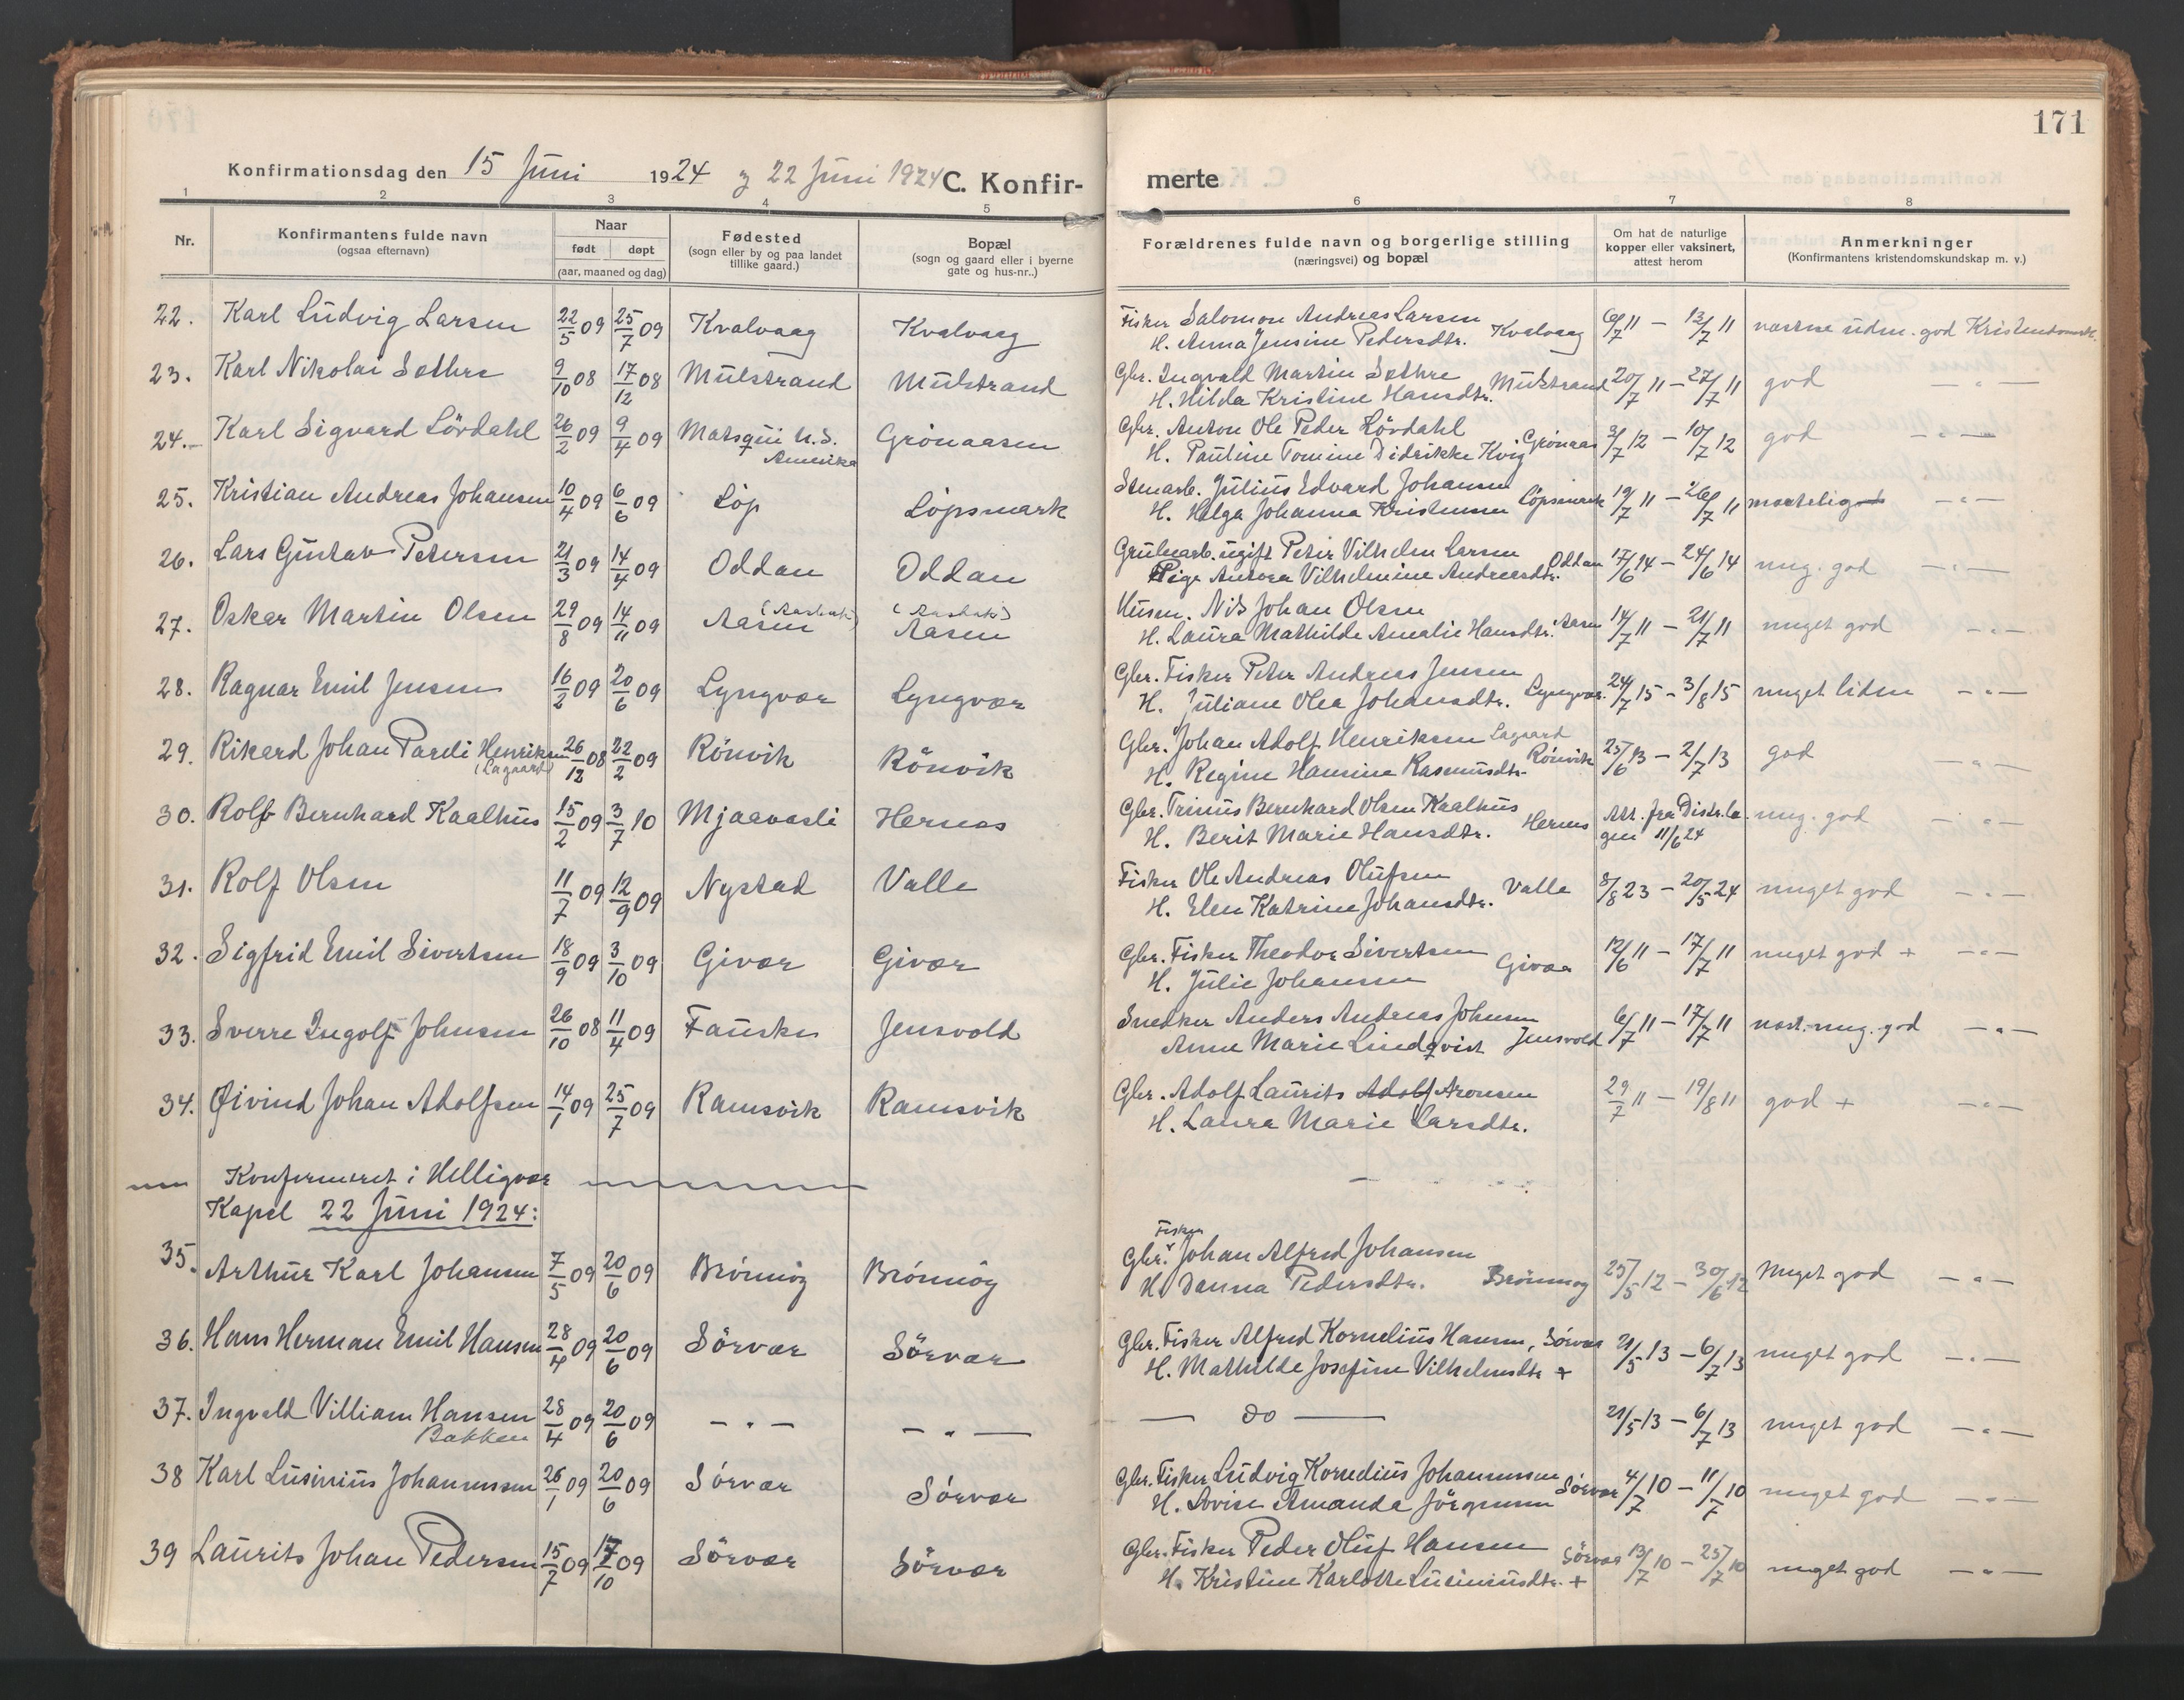 171
Konfirmationsdag den 15 Juni 1924 22 Juni 1924 C. Konfir- merte
1 2 3 4 5 6 7 8
Nr.
Konfirmantens fulde navn
(ogsaa efternavn)
Naar
født døpt
(aar, maaned og dag)
Fødested
(sogn eller by og paa landet
tillike gaard.)
Bopæl
(sogn og gaard eller i byerne
gate og hus-nr..)
Forældrenes fulde navn og borgerlige stilling
(næringsvei) og bopæl
Om hat de naturlige
kopper eller vaksinert,
attest herom
Anmerkninger
(Konfirmantens kristendomskundskap m. v.)
22. Karl Ludvig Larsen 22/5 09 25/7 09 Kvalvaag Kvalvaag Fisker Salomon Andreas Larsen
H. Anna Jensine Pedersdtr. Kvalvaag 6/7 11 – 13/7 11 næsten udm. god
23. Karl Nikolai Sæthre 9/10 08 17/12 08 Mulstrand Mulstrand Gbr. Ingvald Martin Sæthre
H. Hilda Kristine Hansdtr. Mulstrand 20/7 11 – 27/7 11 god – " –
24. Karl Sigvard Lövdahl 26/2 09 9/4 09 Matsqui U.S. Grönaasen Gbr. Anton Ole Peder Lövdahl
Amerika H. Pauline Tomine Didrikke Kvig Grönaas 3/7 12 – 10/7 12 god – " –
25. Kristian Andreas Johansen 10/4 09 6/6 09 Löp Löpsmark Stenarb. Julius Edvard Johansen
H. Helga Johanna Kristensen Löpsmark 19/7 11 – 26/7 11 – " –
26. Lars Gustav Petersen 21/3 09 14/4 09 Oddan Oddan Grubearb. ugift Peter Vilhelm Larsen
Pige Aurora Vilhelmine Andreasdtr. Oddan 17/6 14 – 24/6 14 meg. god – " –
27. Oskar Martin Olsen 29/8 09 14/11 09 Aasen Aasen Husm. Nils Johan Olsen
H. Laura Mathilde Amalie Hansdtr. Aasen 14/7 11 – 21/7 11 meget god – " –
28. Ragnar Emil Jensen 16/2 09 20/6 09 Lyngvær Lyngvær Gbr. Fisker Peter Andreas Jensen
H. Juliane Olea Johansdtr. Lyngvær 24/7 15 – 3/8 15 meget liden – " –
29. Rikard Johan Pareli Henriksen 26/12 08 22/2 09 Rönvik Rönvik Gbr. Johan Adolf Henriksen Lagaard
(Lagaard) H. Regine Hansine Rasmusdtr. Rönvik 25/6 13 – 2/7 13 god – " –
30. Rolf Bernhard Kaalhus 15/2 09 3/7 10 Mjaavasli Hernes Gbr. Trinus Bernhard Olsen Kaalhus
H. Berit Marie Hansdtr. Hernes Att. fra Distr.læ-
gen 11/6 24 meg. god – " –
31. Rolf Olsen 11/7 09 12/9 09 Nystad Valle Fisker Ole Andreas Olufsen
H. Elen Katrine Johansdtr. Valle 8/8 23 – 20/5 24 meget god – " –
32. Sigfrid Emil Sivertsen 18/9 09 3/10 09 Givær Givær Gbr. Fisker Theodor Sivertsen
H. Julie Johansen Givær 12/6 11 – 17/7 11 meget god + – " –
33. Sverre Ingolf Johnsen 26/10 08 11/4 09 Fauske Jensvold Snedker Anders Andreas Johnsen
Anne Marie Lindqvist Jensvold 6/7 11 – 17/7 11 næst. meg. god – " –
34. Øivind Johan Adolfsen 14/1 09 25/7 09 Ramsvik Ramsvik Gbr. Adolf Laurits Adolf Aronsen
H. Laura Marie Larsdtr. 29/7 11 – 19/8 11 god + – " –
Konfirmeret i Helligvær
Kapel 22 Juni 1924:
35. Arthur Karl Johansen 7/5 09 20/6 09 Brönnöy Brönnöy Fisker
Gbr. Johan Alfred Johansen
H. Danna Pedersdtr. Brönnöy 25/5 12 – 30/6 12 Meget god – " –
36. Hans Herman Emil Hansen 28/4 09 20/6 09 Sörvær Sörvær Gbr. Fisker Alfred Kornelius Hansen, Sörvær
H. Mathilde Josefine Vilhelmsdtr + 21/5 13 – 6/7 13 meget god – " –
37. Ingvald Villiam Hansen 28/4 09 20/6 09 – " – – " – – do – 21/5 13 – 6/7 13 meget god – " –
Bakken
38 Karl Lusinius Johannessen 26/1 09 20/6 09 Sörvær Sörvær Gbr. Fisker Ludvig Kornelius Johannessen
H. Lovise Amanda Jörgensen Sörvær 4/7 10 – 11/7 10 meget god – " –
39 Laurits Johan Pedersen 15/7 09 17/10 09 Sörvær Sörvær Gbr. Fisker Peder Oluf Hansen
H. Kristine Karlotte Lusiniusdtr. + Sörvær 13/7 10 – 25/7 10 meget god – " –